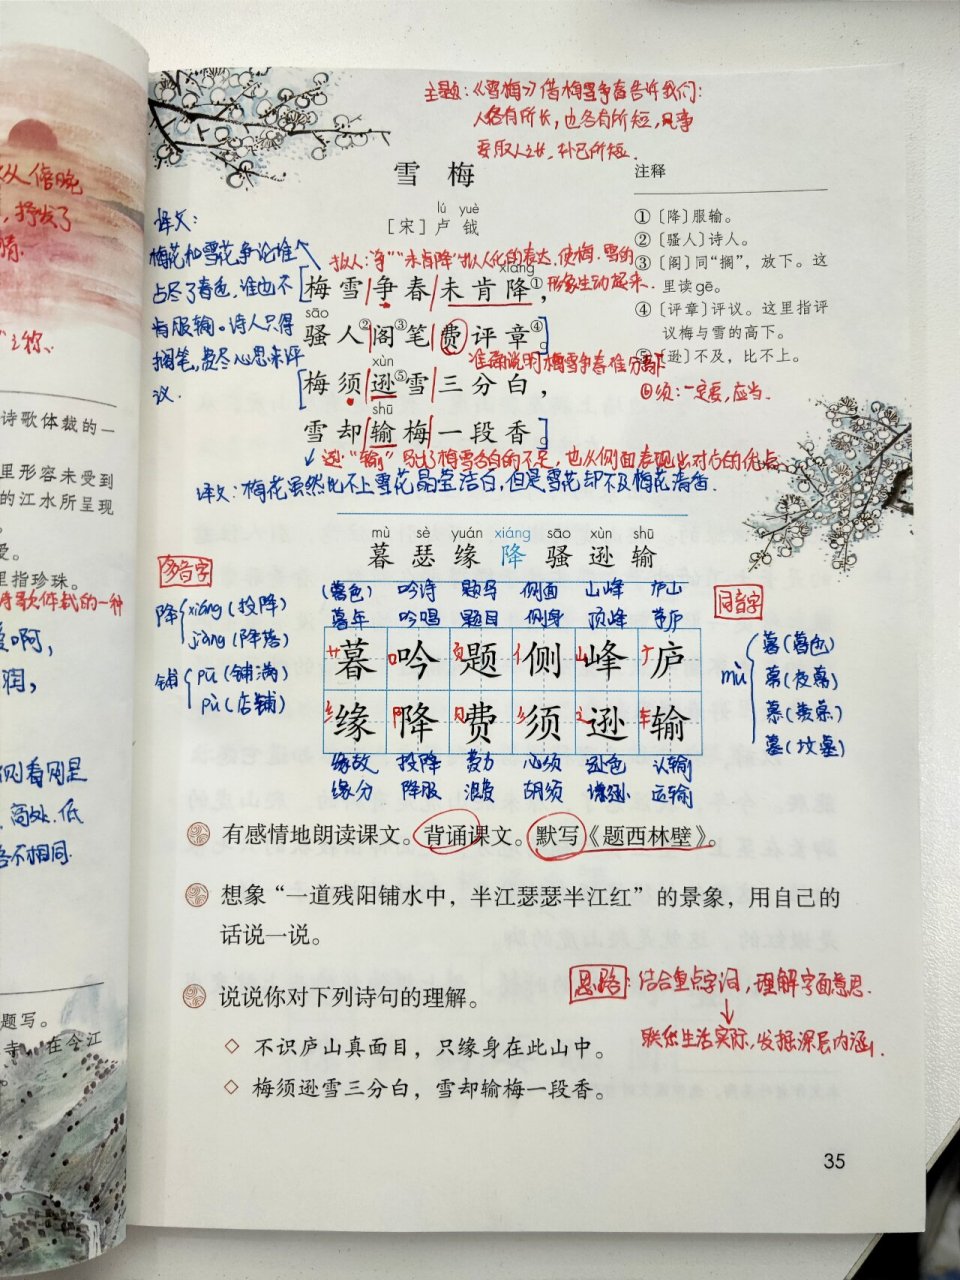 主题:《雪梅》借梅雪争春告诉我们:
人各有所长,也各有所短,凡事
要取人之长,补己所短.
雪 梅
lú yuè
[宋]卢 钺
注释
①〔降〕服输。
②〔骚人〕诗人。
③〔阁〕同“搁”,放下。这
里读gē。
④〔评章〕评议。这里指评
议梅与雪的高下。
〔逊〕不及,比不上。
⑥须:一定要,应当.
译文:
梅花和雪花争论谁
占尽了春色,谁也不
肯服输。诗人只得
搁笔,费尽心思来评
议.
拟人:“争”“未肯降”拟人化的表达,使梅、雪的
形象生动起来.
xiáng
梅雪争春未肯降①,
sāo
骚人②阁③笔费评章④。
准确说明了梅雪争春难分高下
xùn
梅须逊⑤雪三分白,
shū
雪却输梅一段香。
逊“输”写出了梅雪各自的不足,也从侧面表现出对方的优点
译文:梅花虽然比不上雪花晶莹洁白,但是雪花却不及梅花清香.
mù sè yuán xiáng sāo xùn shū
暮 瑟 缘 降 骚 逊 输
多音字
降 xiáng(投降)
jiàng(降落)
铺 pū(铺满)
pù(店铺)
(暮色) 吟诗 题写 侧面 山峰 庐山
暮年 吟唱 题目 侧身 顶峰 草庐
暮 吟 题 侧 峰 庐
缘 降 费 须 逊 输
缘故 投降 费力 必须 逊色 认输
缘分 降服 浪费 胡须 谦逊 运输
同音字
mù
暮(暮色)
幕(夜幕)
慕(羡慕)
墓(坟墓)
有感情地朗读课文。背诵课文。默写《题西林壁》。
想象“一道残阳铺水中,半江瑟瑟半江红”的景象,用自己的
话说一说。
说说你对下列诗句的理解。
思路:结合重点字词,理解字面意思.
联系生活实际,发掘深层内涵.
◇ 不识庐山真面目,只缘身在此山中。
◇ 梅须逊雪三分白,雪却输梅一段香。
35
从傍晚
,抒发了
情.
之称.
诗歌体裁的一
里形容未受到
的江水所呈现
。
里指珍珠。
诗歌体裁的一种
侧看同是
高处、低
各不相同.
题写。
寺,在今江